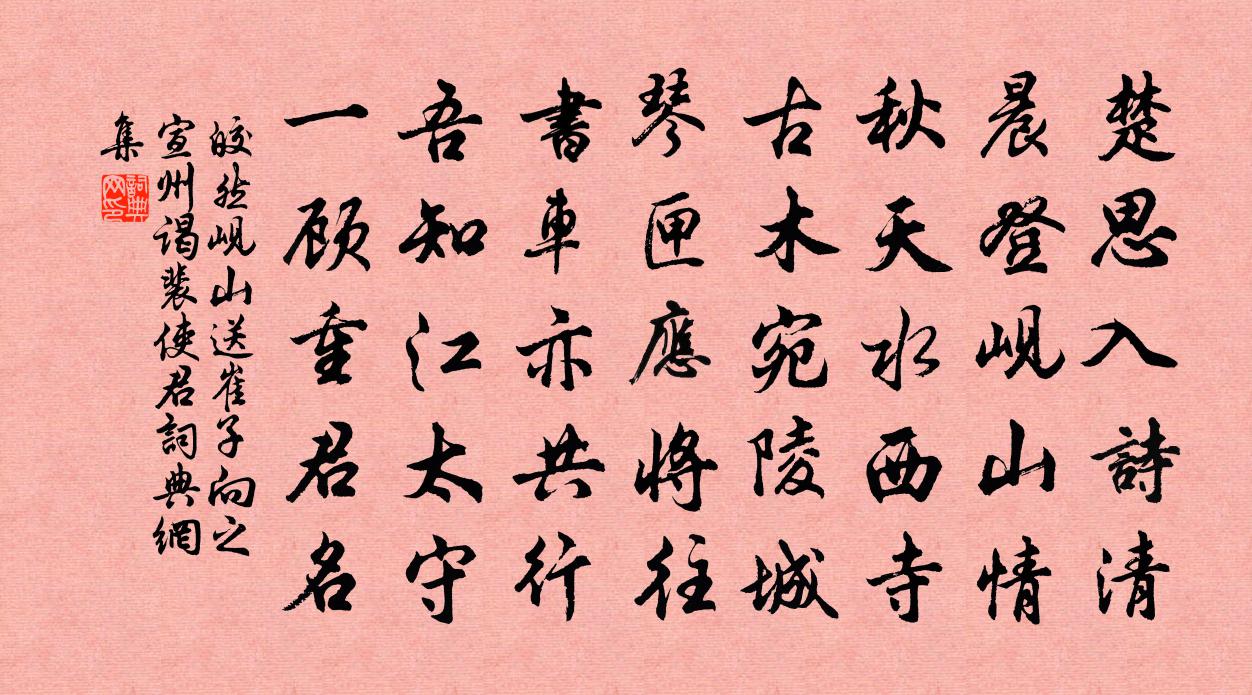 楚思入詩清
晨登峴山情
秋天水西寺
古木宛陵城
琴匣應將往
書車亦共行
吾知江太守
一顾重君名
皎然峴山送崔子向之
宣州谒裴使君詞典網
集
詞典
网印